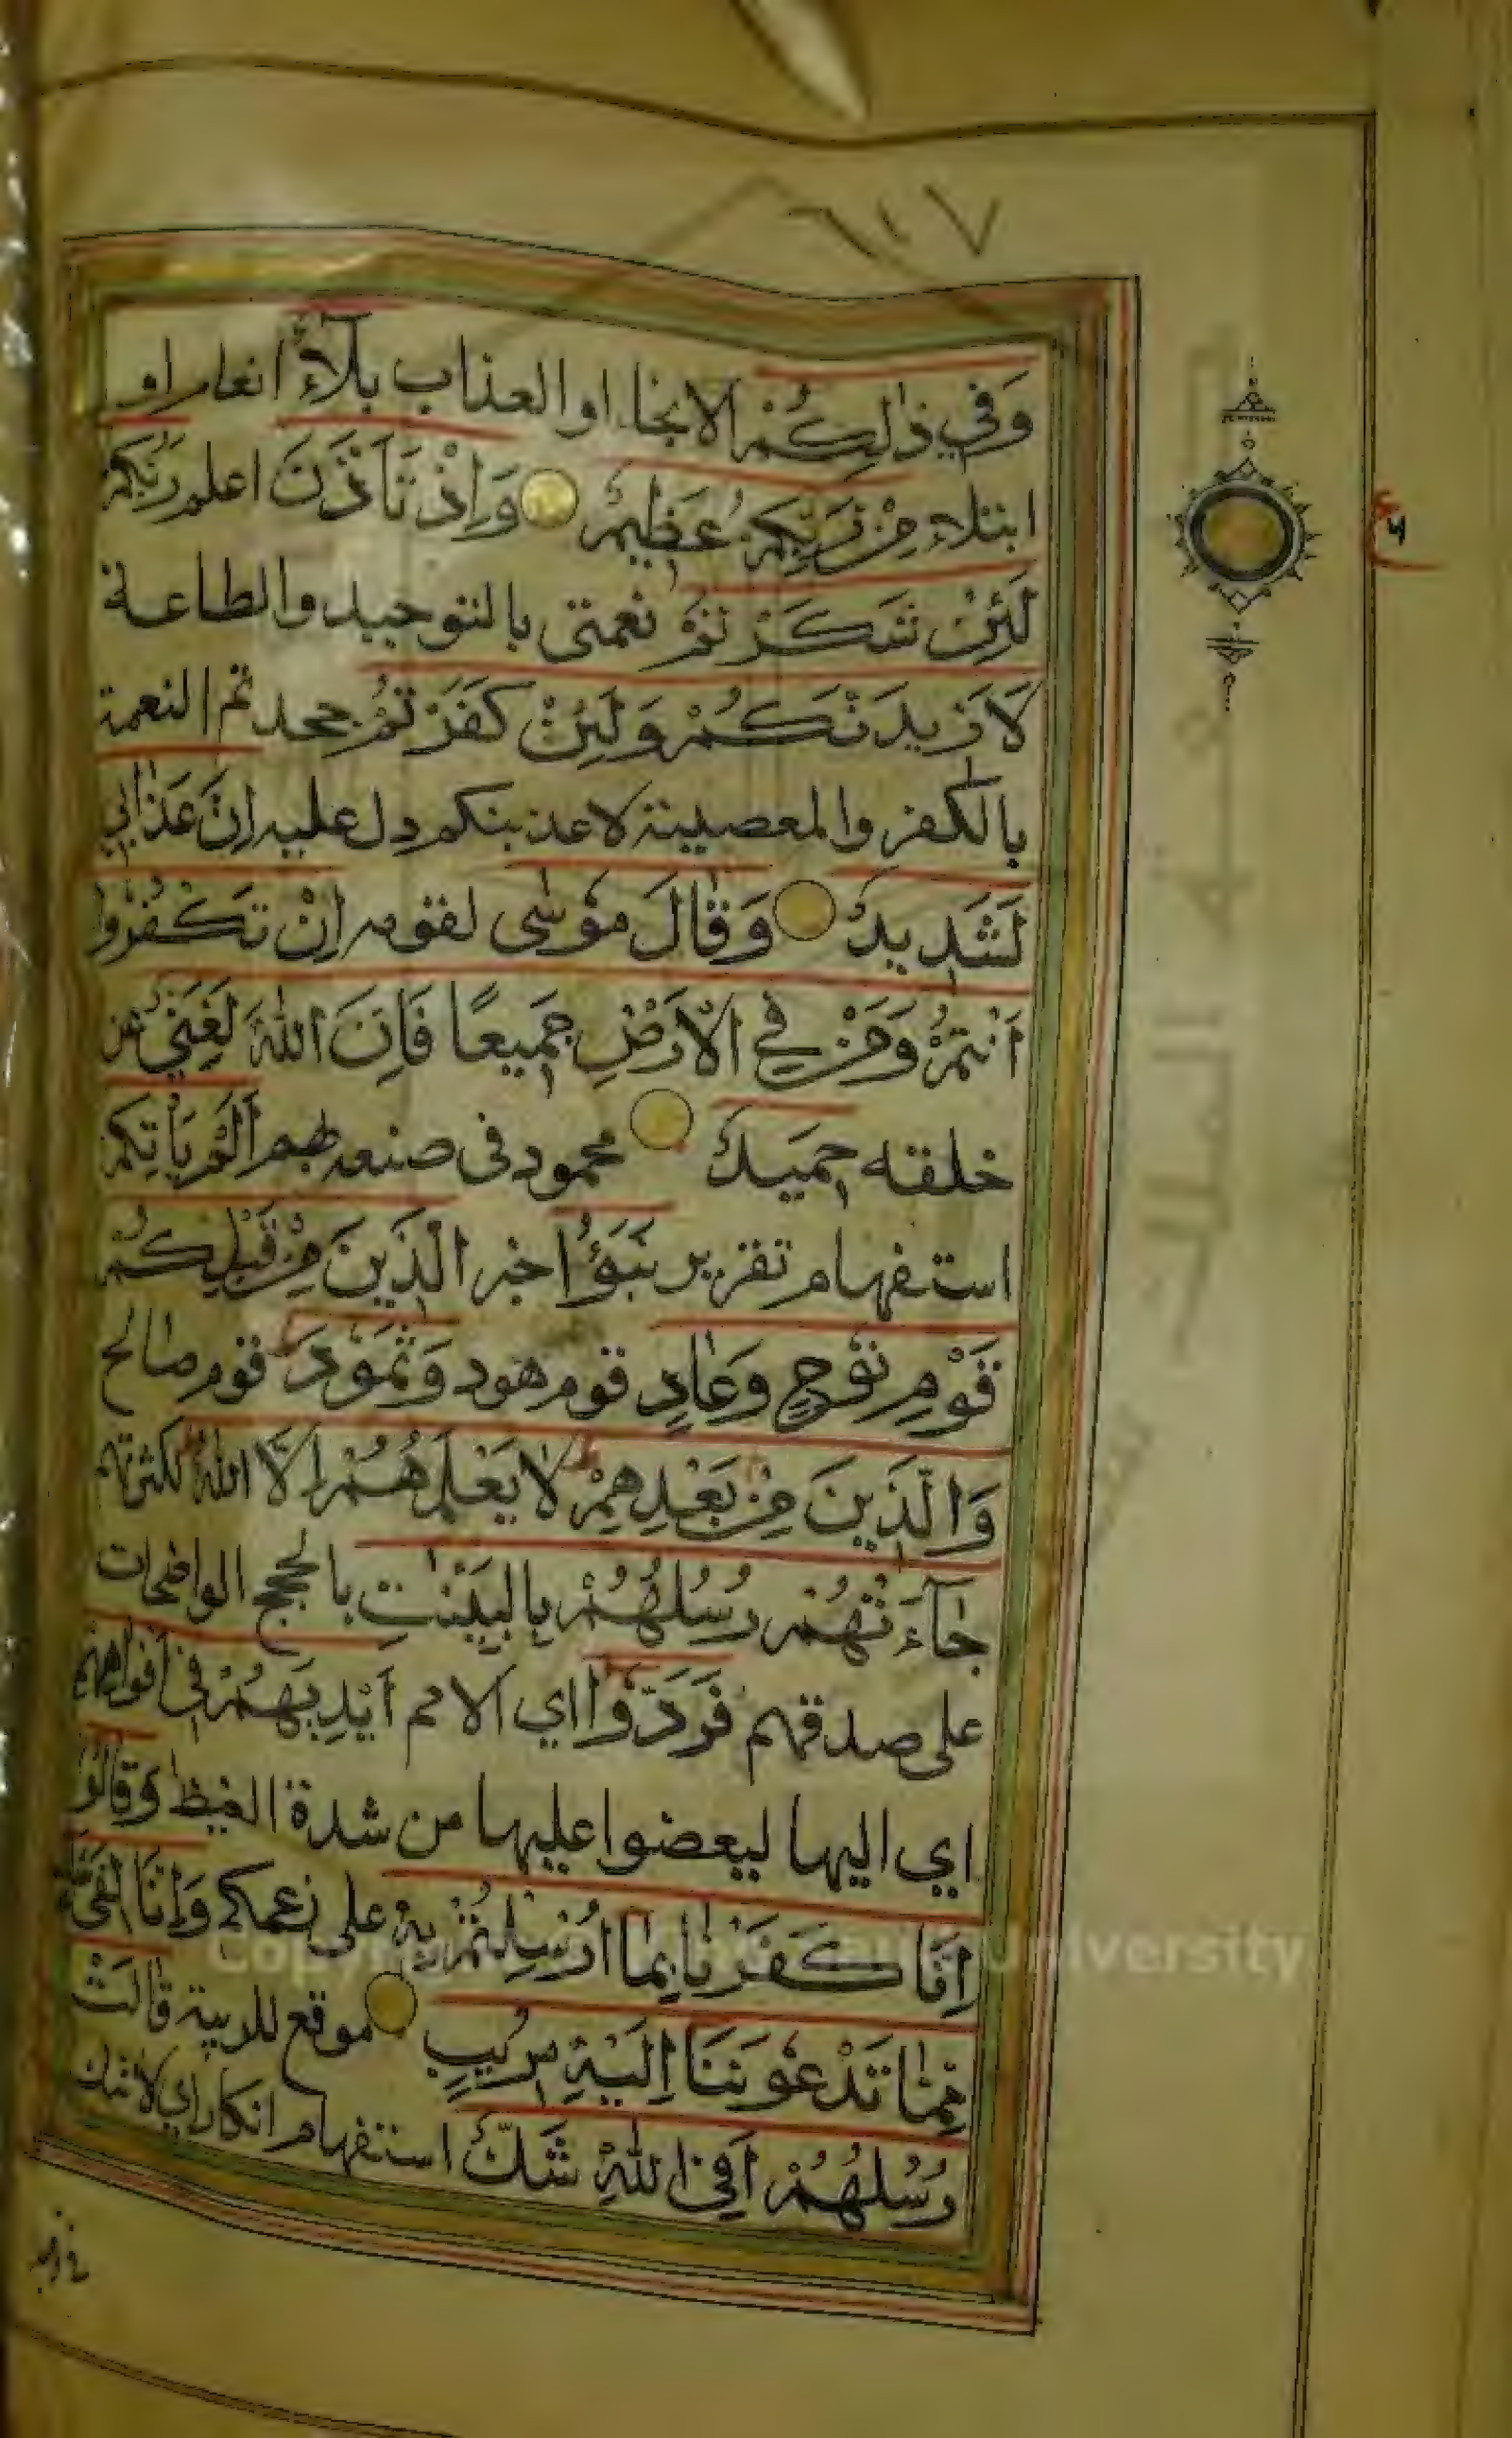 ٦١٧
وَفِي ذٰلِكُمْ الانجاء او العذاب بَلَآءٌ انعام او
ابتلاء مِنْ رَبِّكُمْ عَظِيمٌ وَاِذْ تَاَذَّنَ اعلم رَبُّكُمْ
لَئِنْ شَكَرْتُمْ نعمتى بالتوحيد والطاعة
لَاَزِيدَنَّكُمْ وَلَئِنْ كَفَرْتُمْ جحدتم النعمة
بالكفر والمعصية لاعذبنكم دل عليه اِنَّ عَذَابِي
لَشَدِيدٌ وَقَالَ مُوسٰى لقومه اِنْ تَكْفُرُوا
اَنْتُمْ وَمَنْ فِي الْاَرْضِ جَمِيعًا فَاِنَّ اللّٰهَ لَغَنِيٌّ عن
خلقه حَمِيدٌ محمود فى صنعه بهم اَلَمْ يَاْتِكُمْ
استفهام تقرير نَبَؤُا خبر الَّذِينَ مِنْ قَبْلِكُمْ
قَوْمِ نُوحٍ وَعَادٍ قوم هود وَثَمُودَ قوم صالح
وَالَّذِينَ مِنْ بَعْدِهِمْ لَا يَعْلَمُهُمْ اِلَّا اللّٰهُ لكثرتهم
جَآءَتْهُمْ رُسُلُهُمْ بِالْبَيِّنٰتِ بالحجج الواضحات
على صدقهم فَرَدُّوا اي الامم اَيْدِيَهُمْ فِي اَفْوَاهِهِمْ
اي اليها ليعضوا عليها من شدة الغيظ وَقَالُوا
اِنَّا كَفَرْنَا بِمَا اُرْسِلْتُمْ بِهِ على زعمكم وَاِنَّا لَفِي شَكٍّ
مِمَّا تَدْعُونَنَا اِلَيْهِ مُرِيبٍ موقع للريبة قَالَتْ
رُسُلُهُمْ اَفِي اللّٰهِ شَكٌّ استفهام انكار اي لا شك
Copyright University